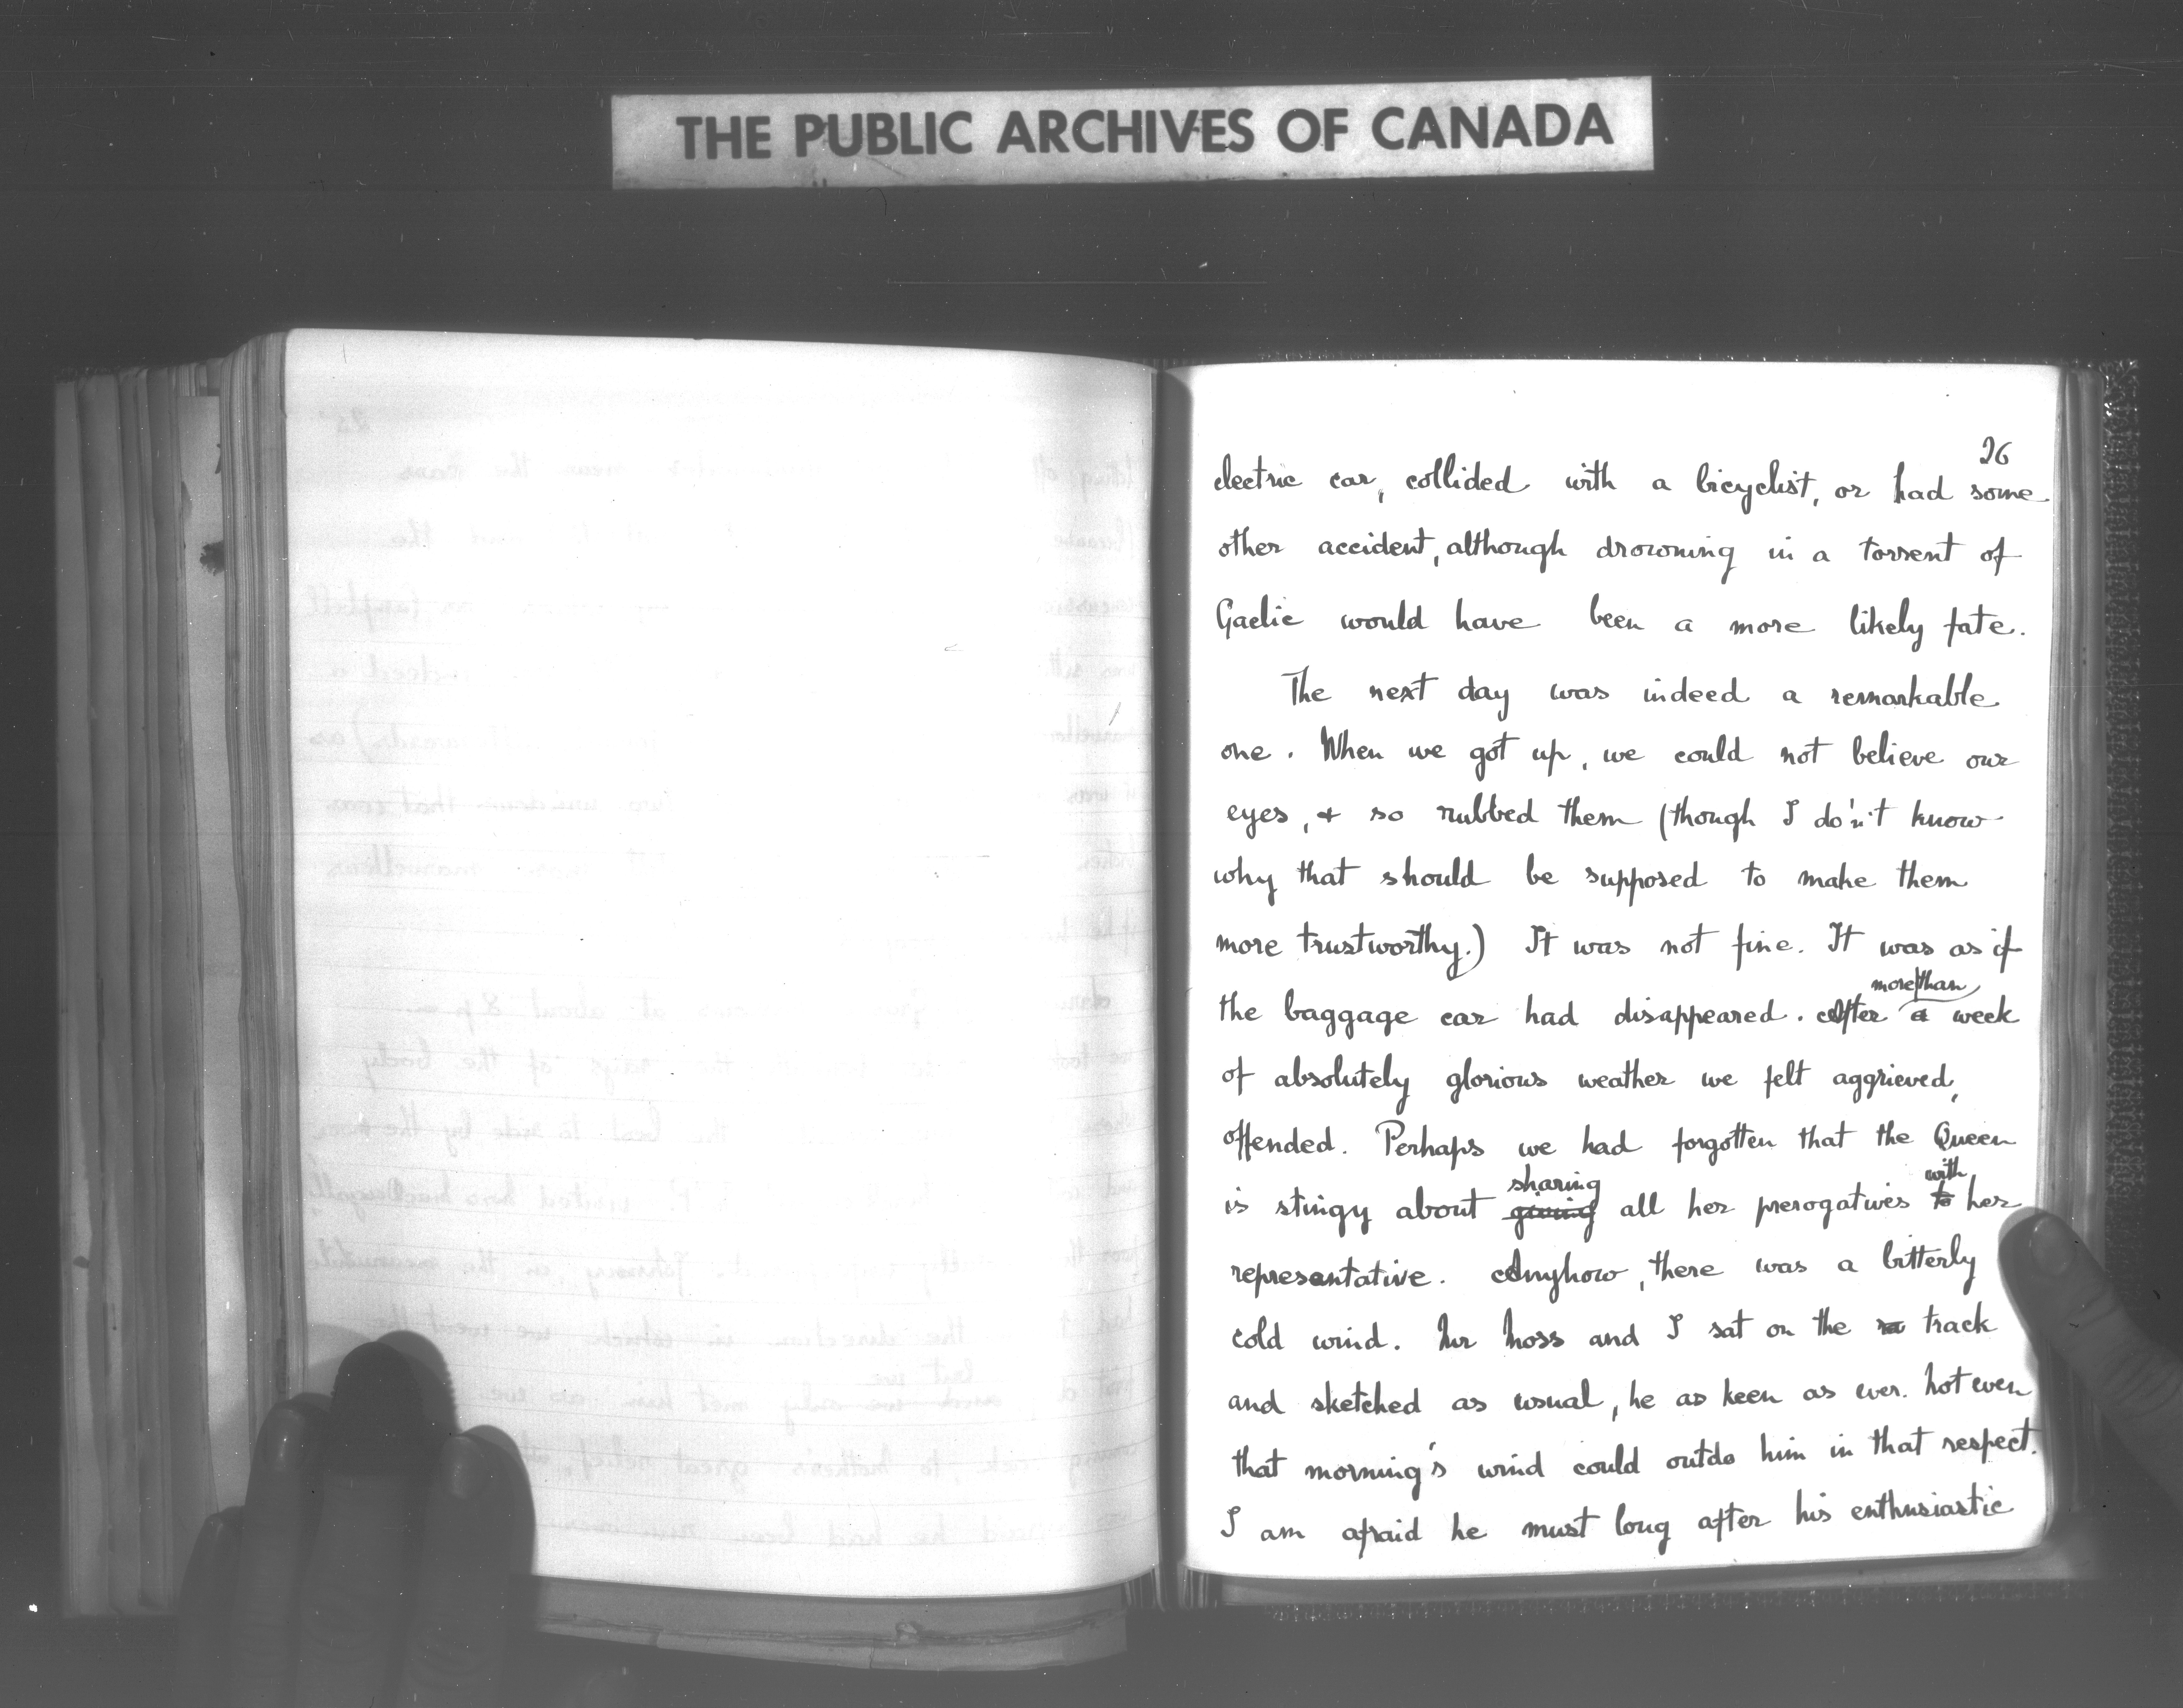 THE PUBLIC ARCHIVES OF CANADA
26
electric car, collided with a bicyclist, or had some
other accident, although drowning in a torrent of
Gaelic would have been a more likely fate.
The next day was indeed a remarkable
one. When we got up, we could not believe our
eyes, & so rubbed them (though I do'n't know
why that should be supposed to make them
more trustworthy.) It was not fine. It was as if
more than
the baggage car had disappeared. After a week
of absolutely glorious weather we felt aggrieved,
offended. Perhaps we had forgotten that the Queen
sharing with
is stingy about giving all her prerogatives to her
representative. Anyhow, there was a bitterly
cold wind. Mr Moss and I sat on the track
and sketched as usual, he as keen as ever. Not even
that morning's wind could outdo him in that respect.
I am afraid he must long after his enthusiastic